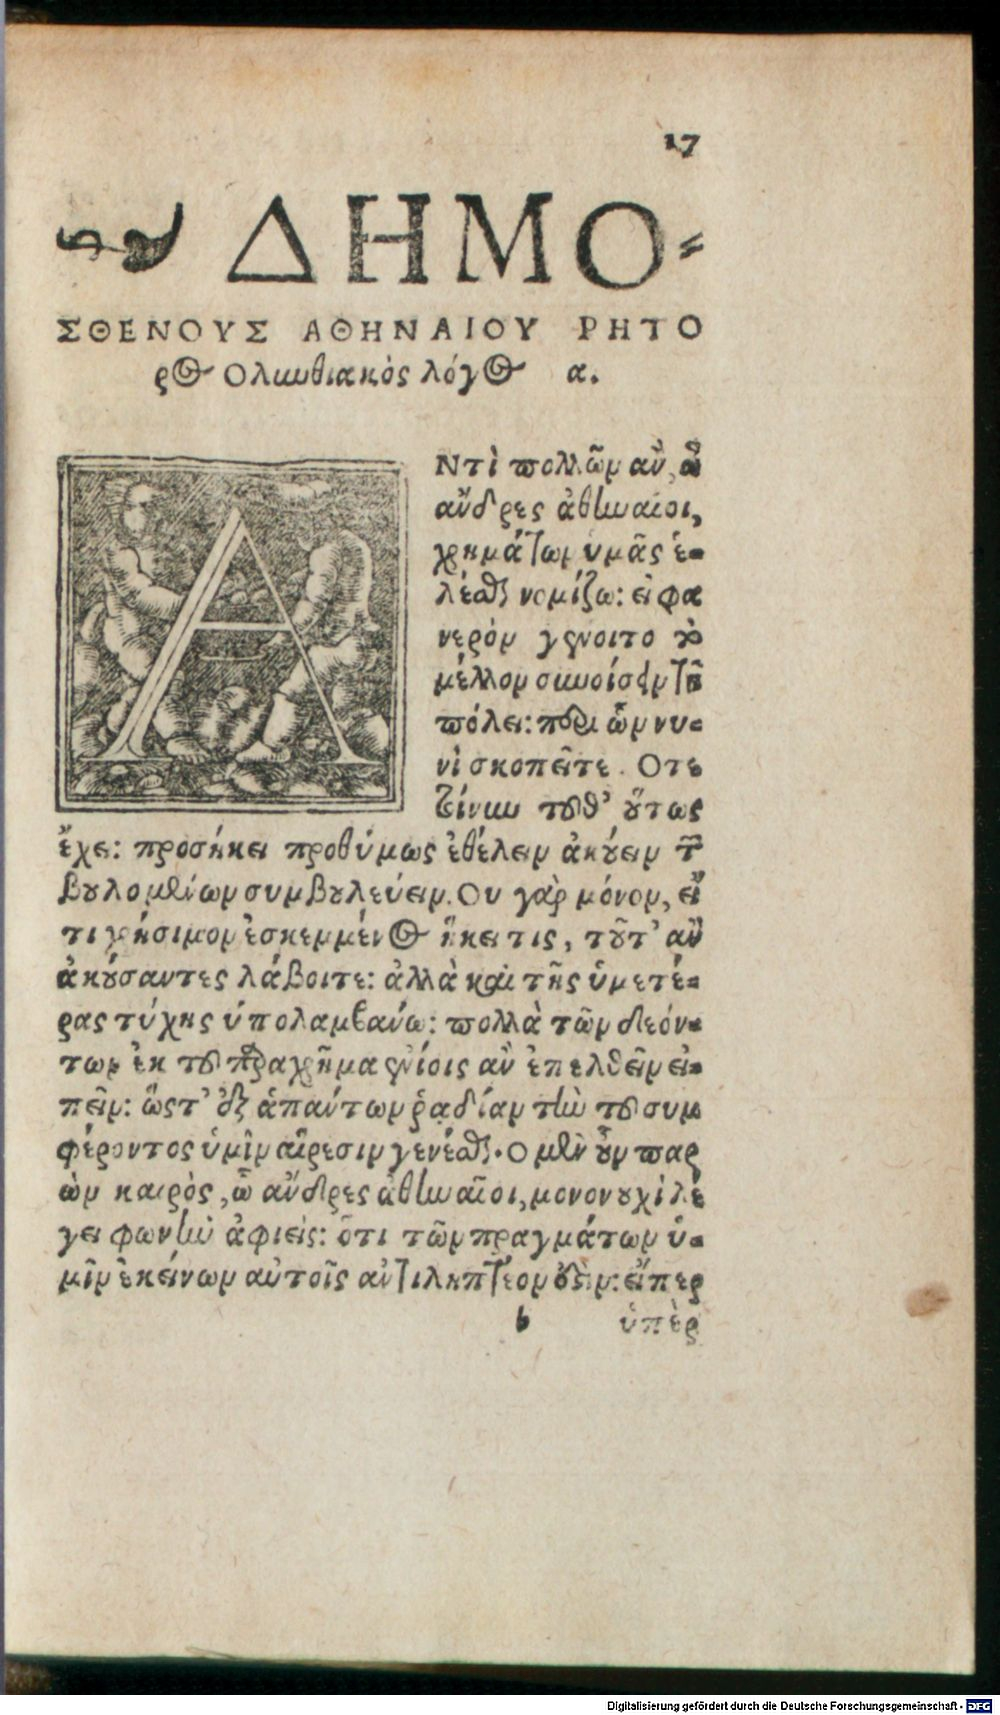 17
ΔΗΜΟ-
ΣΘΕΝΟΥΣ ΑΘΗΝΑΙΟΥ ΡΗΤΟ
ρος Ολυνθιακὸς λόγος α.
ΑΝτὶ πολλῶν ἂν, ὦ
ἄνδρες ἀθηναῖοι,
χρημάτων ὑμᾶς ἑ-
λέσθαι νομίζω: εἰ φα
νερὸν γένοιτο τὸ
μέλλον συνοίσειν τῇ
πόλει: περὶ ὧν νυ-
νὶ σκοπεῖτε. Οτε
τοίνυν τοῦθ' οὕτως
ἔχει: προσήκει προθύμως ἐθέλειν ἀκούειν τῶν
βουλομένων συμβουλεύειν. Ου γὰρ μόνον, εἴ
τι χρήσιμον ἐσκεμμένος ἥκει τις, τοῦτ' ἂν
ἀκούσαντες λάβοιτε: ἀλλὰ καὶ τῆς ὑμετέ-
ρας τύχης ὑπολαμβάνω: πολλὰ τῶν δεόν-
των ἐκ τοῦ παραχρῆμα ἐνίοις ἂν ἐπελθεῖν εἰ-
πεῖν: ὥστ' ἐξ ἁπάντων ῥᾳδίαν τὴν τοῦ συμ
φέροντος ὑμῖν αἵρεσιν γενέσθαι. Ο μὲν οὖν παρ
ὼν καιρὸς, ὦ ἄνδρες ἀθηναῖοι, μονονουχὶ λέ
γει φωνὴν ἀφιεὶς: ὅτι τῶν πραγμάτων ὑ-
μῖν ἐκείνων αὐτοῖς ἀντιληπτέον ἐστὶν: εἴπερ
b ὑπὲρ
Digitalisierung gefördert durch die Deutsche Forschungsgemeinschaft - DFG